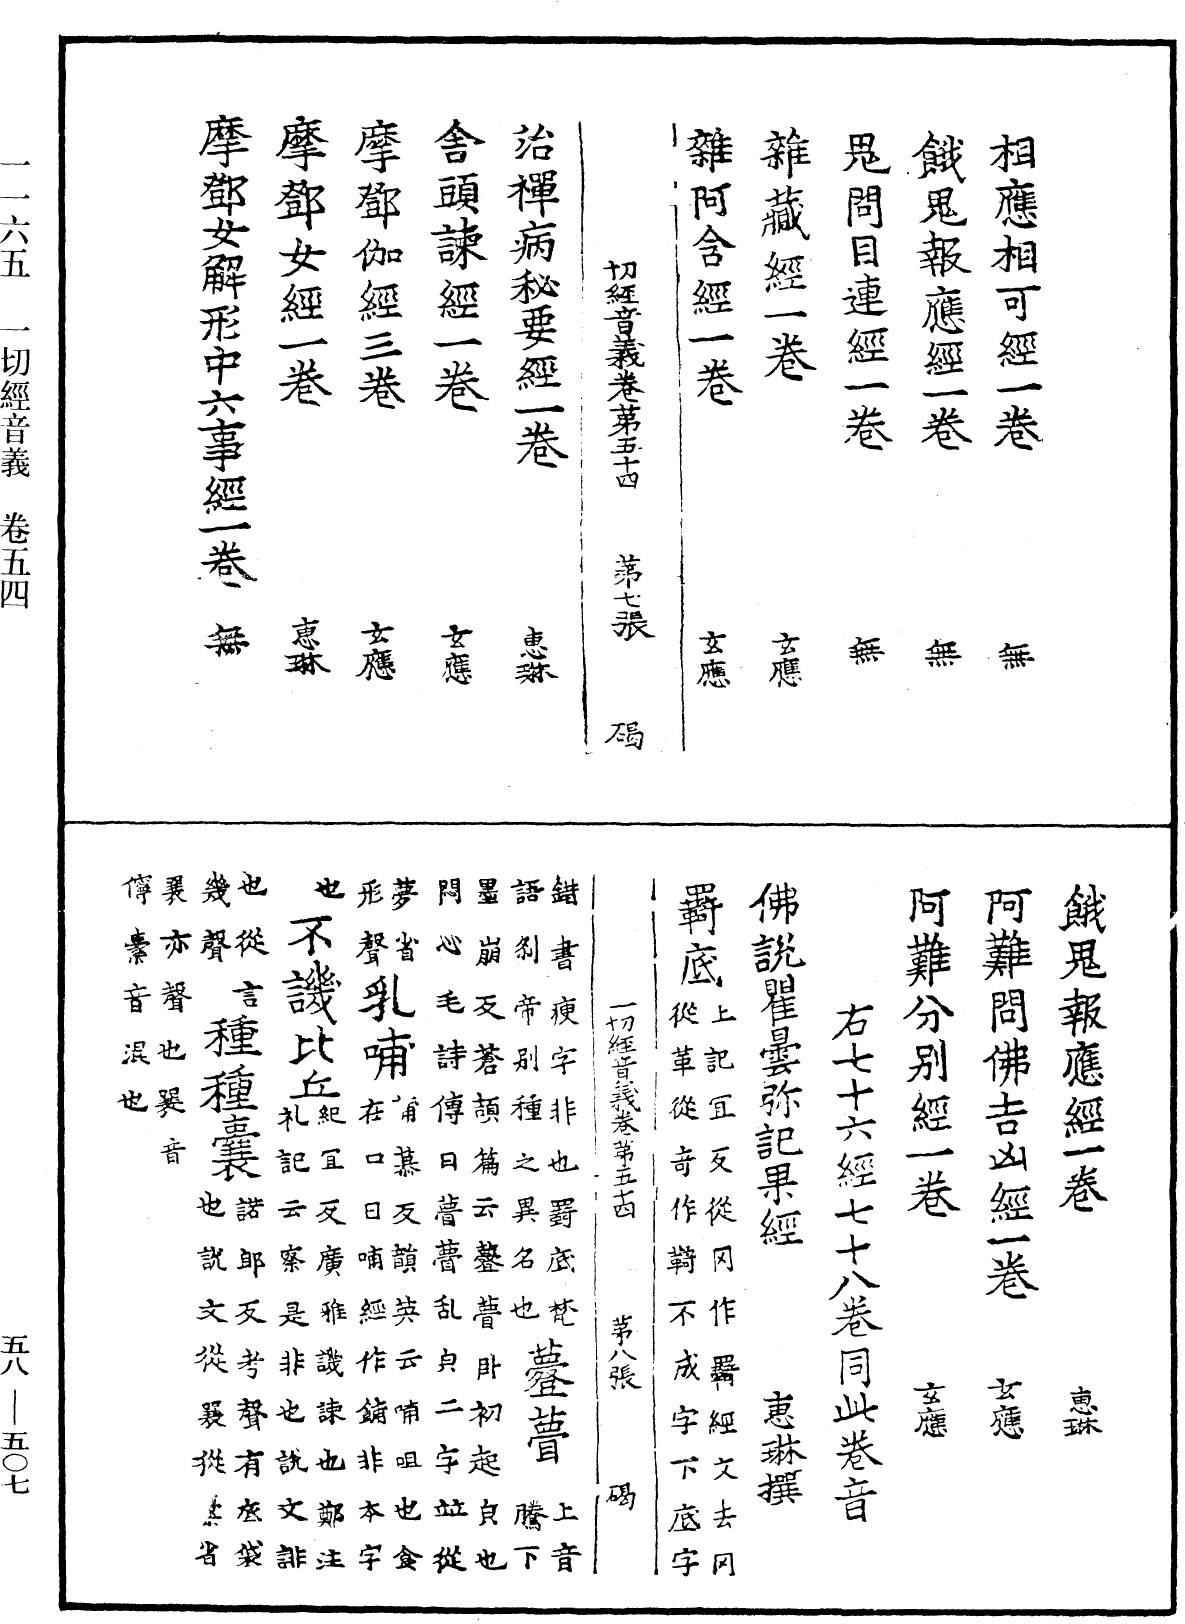 一一六五　一切經音義　卷五四
五八—五〇七
相應相可經一卷　無
餓鬼報應經一卷　無
鬼問目連經一卷　無
雜藏經一卷　玄應
雜阿含經一卷　玄應
切經音義卷第五十四　第七張　碣
治禪病秘要經一卷　惠琳
舍頭諫經一卷　玄應
摩鄧伽經三卷　玄應
摩鄧女經一卷　惠琳
摩鄧女解形中六事經一卷　無
餓鬼報應經一卷　惠琳
阿難問佛吉凶經一卷　玄應
阿難分別經一卷　玄應
右七十六經七十八卷同此卷音
佛說瞿曇弥記果經　惠琳撰
羇底
上記冝反從罒作羇經文去罒
從革從奇作䩭不成字下底字
一切經音義卷第五十四　第八張　碣
錯書㾱字非也罽底梵
語剎帝別種之異名也
薹瞢
上音騰下
墨崩反蒼頡篇云薹瞢卧初起皃也
悶心毛詩傳曰瞢瞢乱皃二字並從
夢省
形聲
乳哺
蒲慕反韻英云哺咀也食
在口曰哺經作餔非本字
也
不譏比丘
紀冝反廣雅譏諫也鄭注
礼記云察是非也說文誹
也從言
幾聲
種種囊
諾郎反考聲有底袋
也說文從㯻從省
襄亦聲也㯻音
儜橐音混也